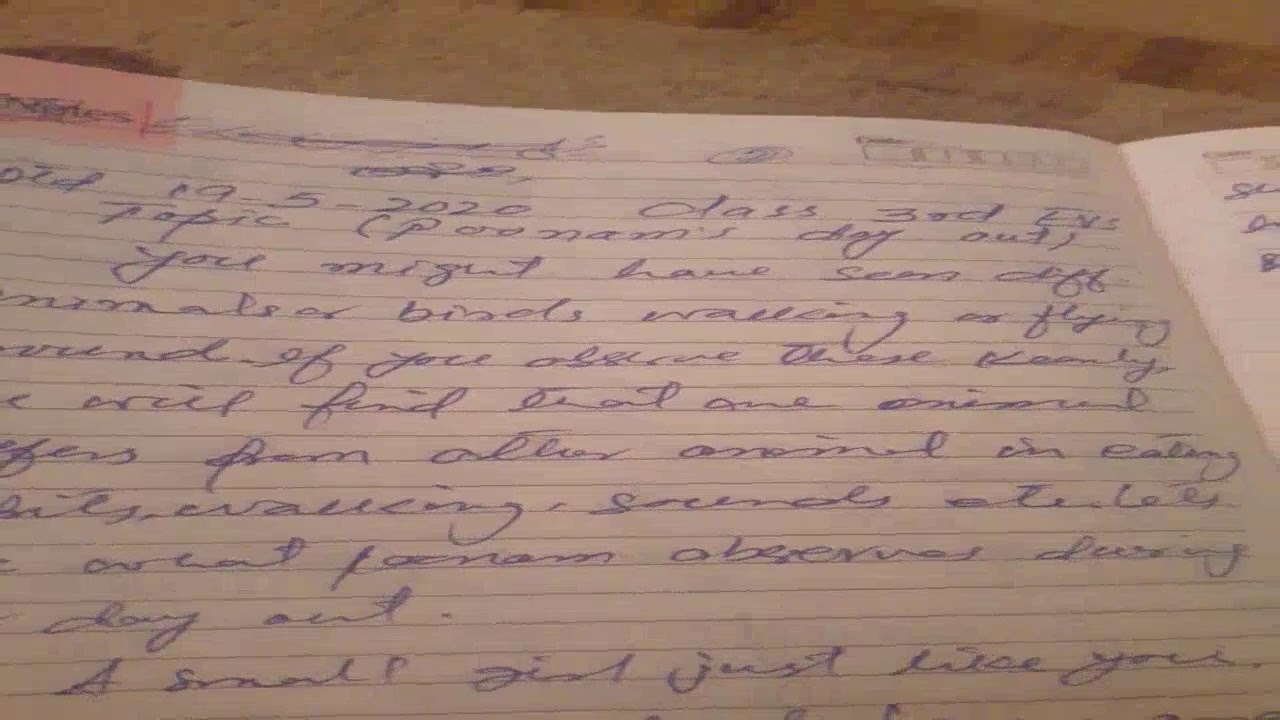 19-5-2020 Class 3rd Evs
Topic (Poonam's day out)
You might have seen diff
nimals or birds walking or flying
round. If you observe these keenly,
will find that one animal
ffers from other animal in eating
bits, walking, sounds etc. lets
what poonam observes during
day out.
A small girl just like you.